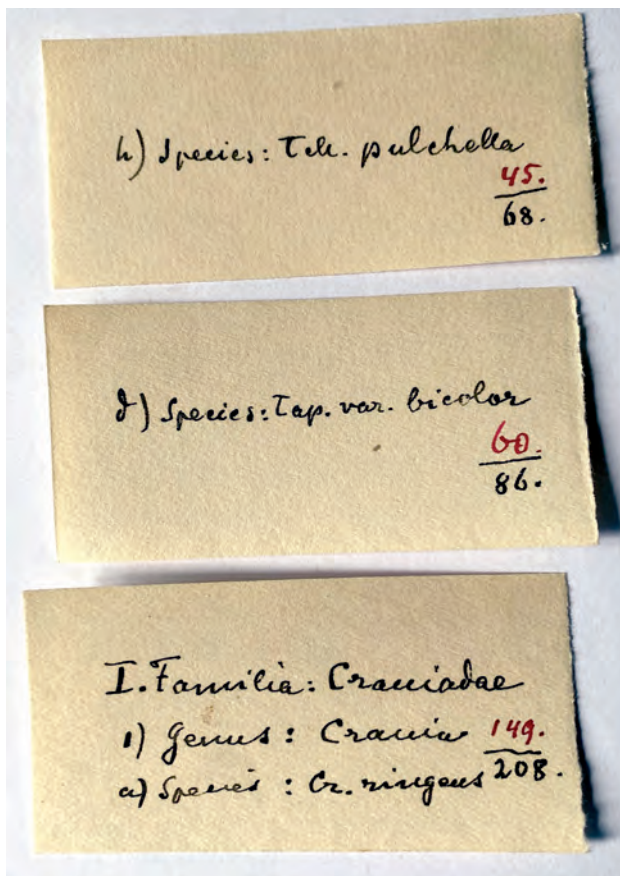 h) Species: Tell. pulchella
45.
68.
d) Species: Tap. var. bicolor
60.
86.
I. Familia: Craniadae
1) Genus: Crania 149.
a) Species: Cr. ringens 208.